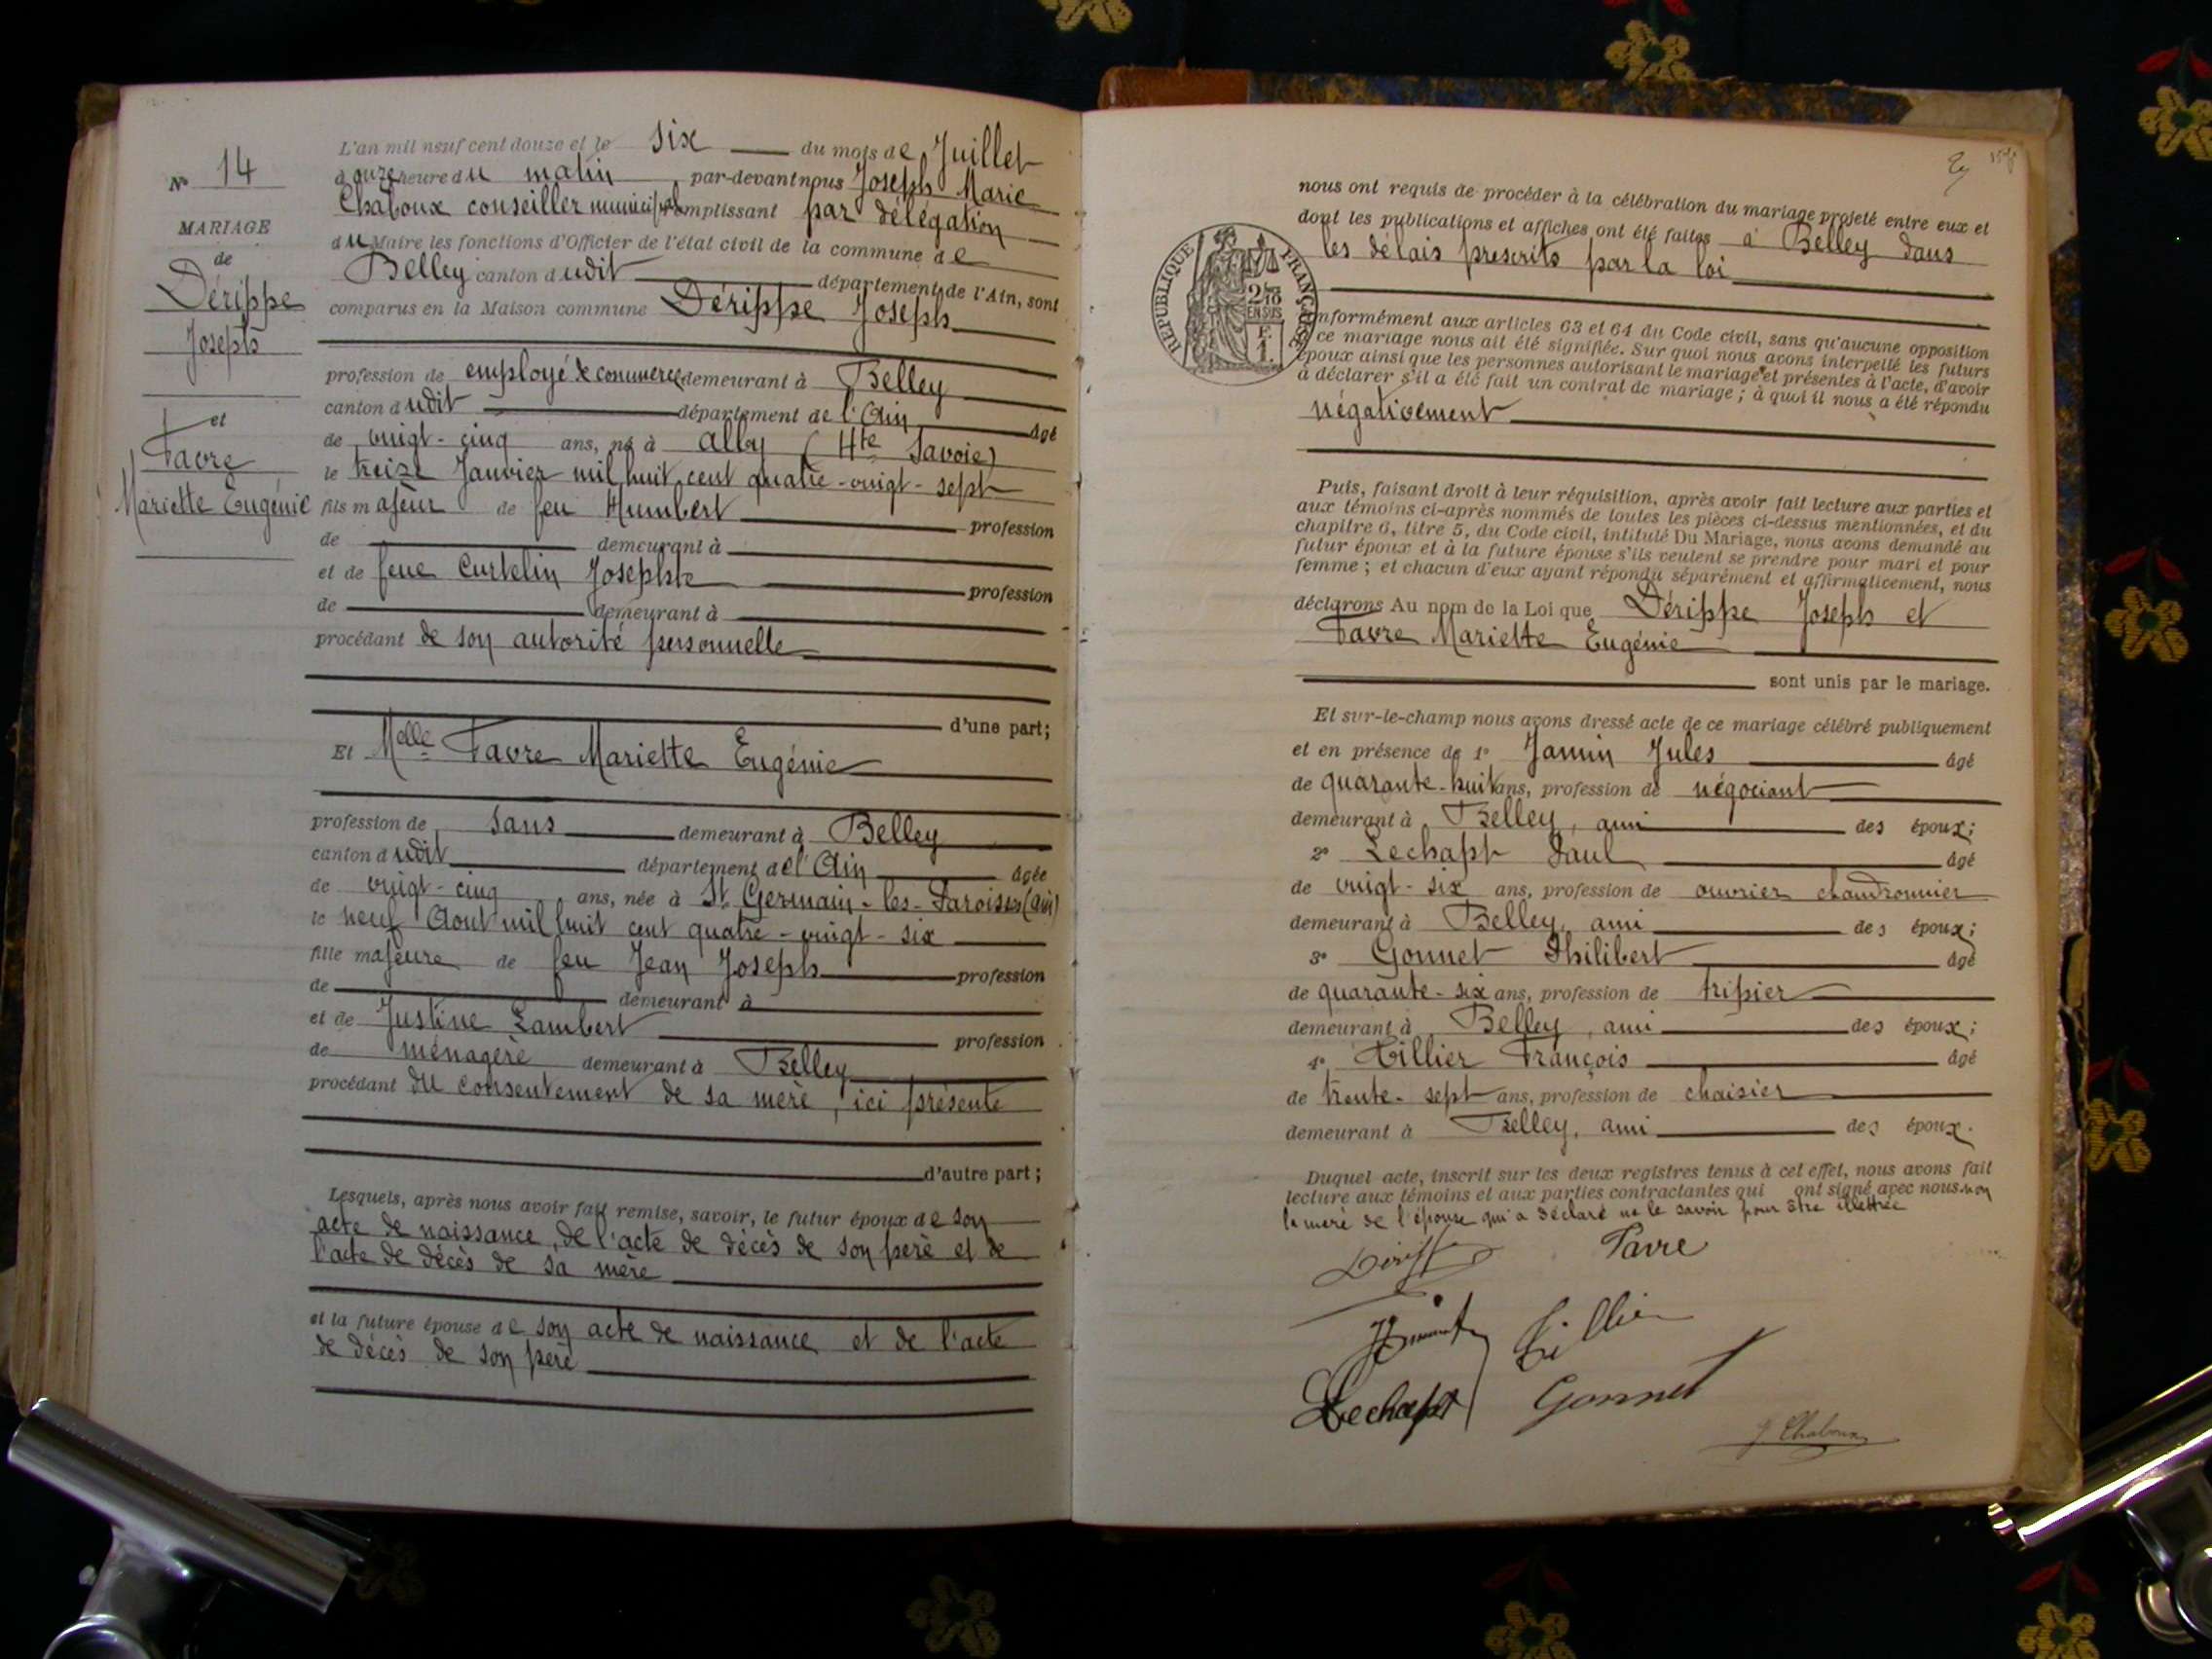 N° 14
MARIAGE
de
Dérippe
Joseph
et
Favre
Mariette Eugénie
L'an mil neuf cent douze et le six du mois de Juillet
à onze heure du matin, par-devant nous Joseph Marie
Chaboux conseiller municipal remplissant par délégation
du Maire les fonctions d'Officier de l'état civil de la commune de
Belley canton dudit département de l'Ain, sont
comparus en la Maison commune Dérippe Joseph
profession de employé de commerce demeurant à Belley
canton dudit département de l'Ain âgé
de vingt-cinq ans, né à Alby (Hte Savoie)
le treize Janvier mil huit cent quatre-vingt-sept
fils majeur de feu Humbert profession
de demeurant à
et de feue Curtelin Josephte profession
de demeurant à
procédant de son autorité personnelle
d'une part;
Et Melle Favre Mariette Eugénie
profession de sans demeurant à Belley
canton dudit département de l'Ain âgée
de vingt-cinq ans, née à St Germain-les-Paroisses (Ain)
le neuf Aout mil huit cent quatre-vingt-six
fille majeure de feu Jean Joseph profession
de demeurant à
et de Justine Lambert profession
de ménagère demeurant à Belley
procédant du consentement de sa mère, ici présente
d'autre part;
Lesquels, après nous avoir fait remise, savoir, le futur époux de son
acte de naissance, de l'acte de décès de son père et de
l'acte de décès de sa mère
et la future épouse de son acte de naissance et de l'acte
de décès de son père
nous ont requis de procéder à la célébration du mariage projeté entre eux et
dont les publications et affiches ont été faites à Belley dans
les délais prescrits par la loi
RÉPUBLIQUE FRANÇAISE
2/10 EN SUS
F.
1.
conformément aux articles 63 et 64 du Code civil, sans qu'aucune opposition
à ce mariage nous ait été signifiée. Sur quoi nous avons interpellé les futurs
époux ainsi que les personnes autorisant le mariage et présentes à l'acte, d'avoir
à déclarer s'il a été fait un contrat de mariage; à quoi il nous a été répondu
négativement
Puis, faisant droit à leur réquisition, après avoir fait lecture aux parties et
aux témoins ci-après nommés de toutes les pièces ci-dessus mentionnées, et du
chapitre 6, titre 5, du Code civil, intitulé Du Mariage, nous avons demandé au
futur époux et à la future épouse s'ils veulent se prendre pour mari et pour
femme; et chacun d'eux ayant répondu séparément et affirmativement, nous
déclarons Au nom de la Loi que Dérippe Joseph et
Favre Mariette Eugénie
sont unis par le mariage.
Et sur-le-champ nous avons dressé acte de ce mariage célébré publiquement
et en présence de 1° Jamin Jules âgé
de quarante-huit ans, profession de négociant
demeurant à Belley, ami des époux;
2° Lechapt Paul âgé
de vingt-six ans, profession de ouvrier chaudronnier
demeurant à Belley, ami des époux;
3° Gonnet Philibert âgé
de quarante-six ans, profession de tripier
demeurant à Belley, ami des époux;
4° Tillier François âgé
de trente-sept ans, profession de chaisier
demeurant à Belley, ami des époux.
Duquel acte, inscrit sur les deux registres tenus à cet effet, nous avons fait
lecture aux témoins et aux parties contractantes qui ont signé avec nous non
la mère de l'épouse qui a déclaré ne le savoir pour être illettrée
Favre
Tillier
Lechapt
Gonnet
J Chaboux